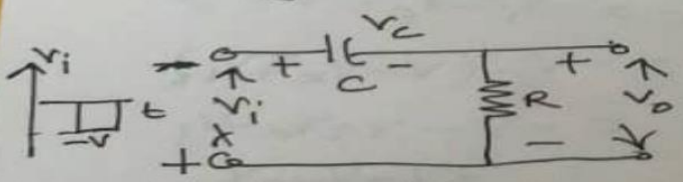 Vi
t
-V
- + Vc -
C
Vi
+
R
+
Vo
-